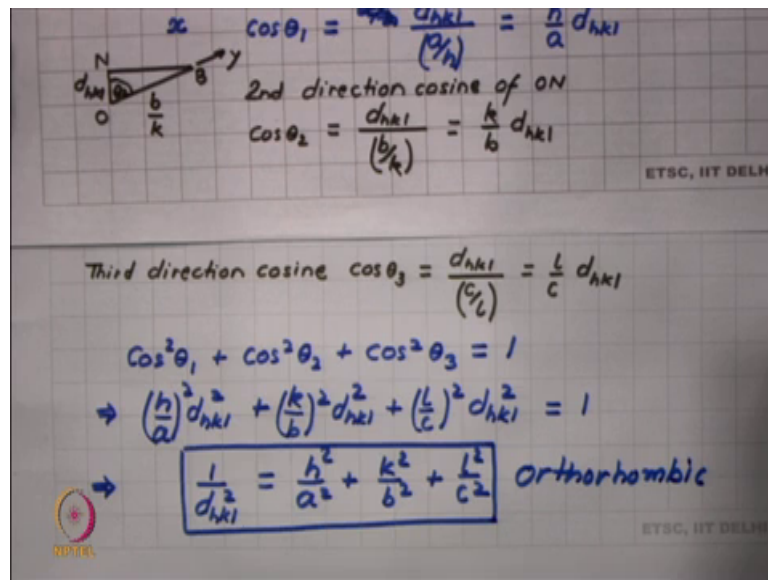 x cosθ₁ = d_hkl / (a/h) = h/a d_hkl
N B y
d_hkl θ₂ 2nd direction cosine of ON
O b/k cosθ₂ = d_hkl / (b/k) = k/b d_hkl
ETSC, IIT DELH
Third direction cosine cosθ₃ = d_hkl / (c/l) = l/c d_hkl
Cos²θ₁ + cos²θ₂ + cos²θ₃ = 1
⇒ (h/a)² d²_hkl + (k/b)² d²_hkl + (l/c)² d²_hkl = 1
⇒ 1/d²_hkl = h²/a² + k²/b² + l²/c² Orthorhombic
NPTEL
ETSC, IIT DELHI